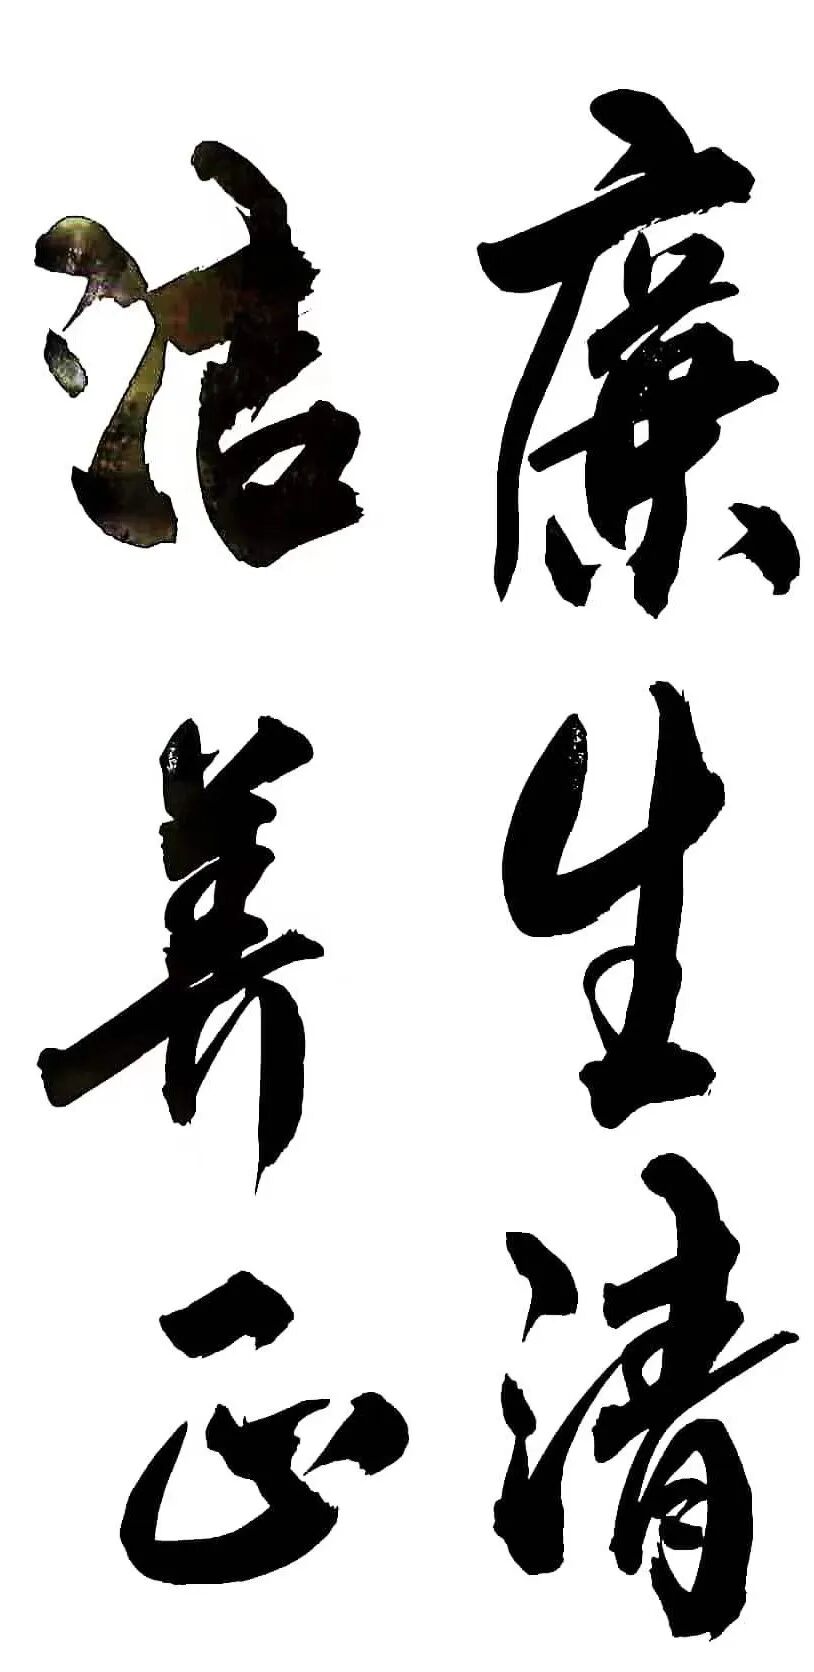 廉生清
洁养正